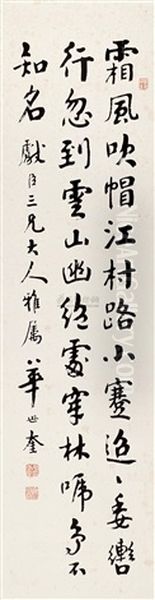 霜風吹帽江村路小蹇迢〻委轡
行忽到雲山幽絕處穿林啼鳥不
知名 獻臣三兄大人雅屬 華世奎